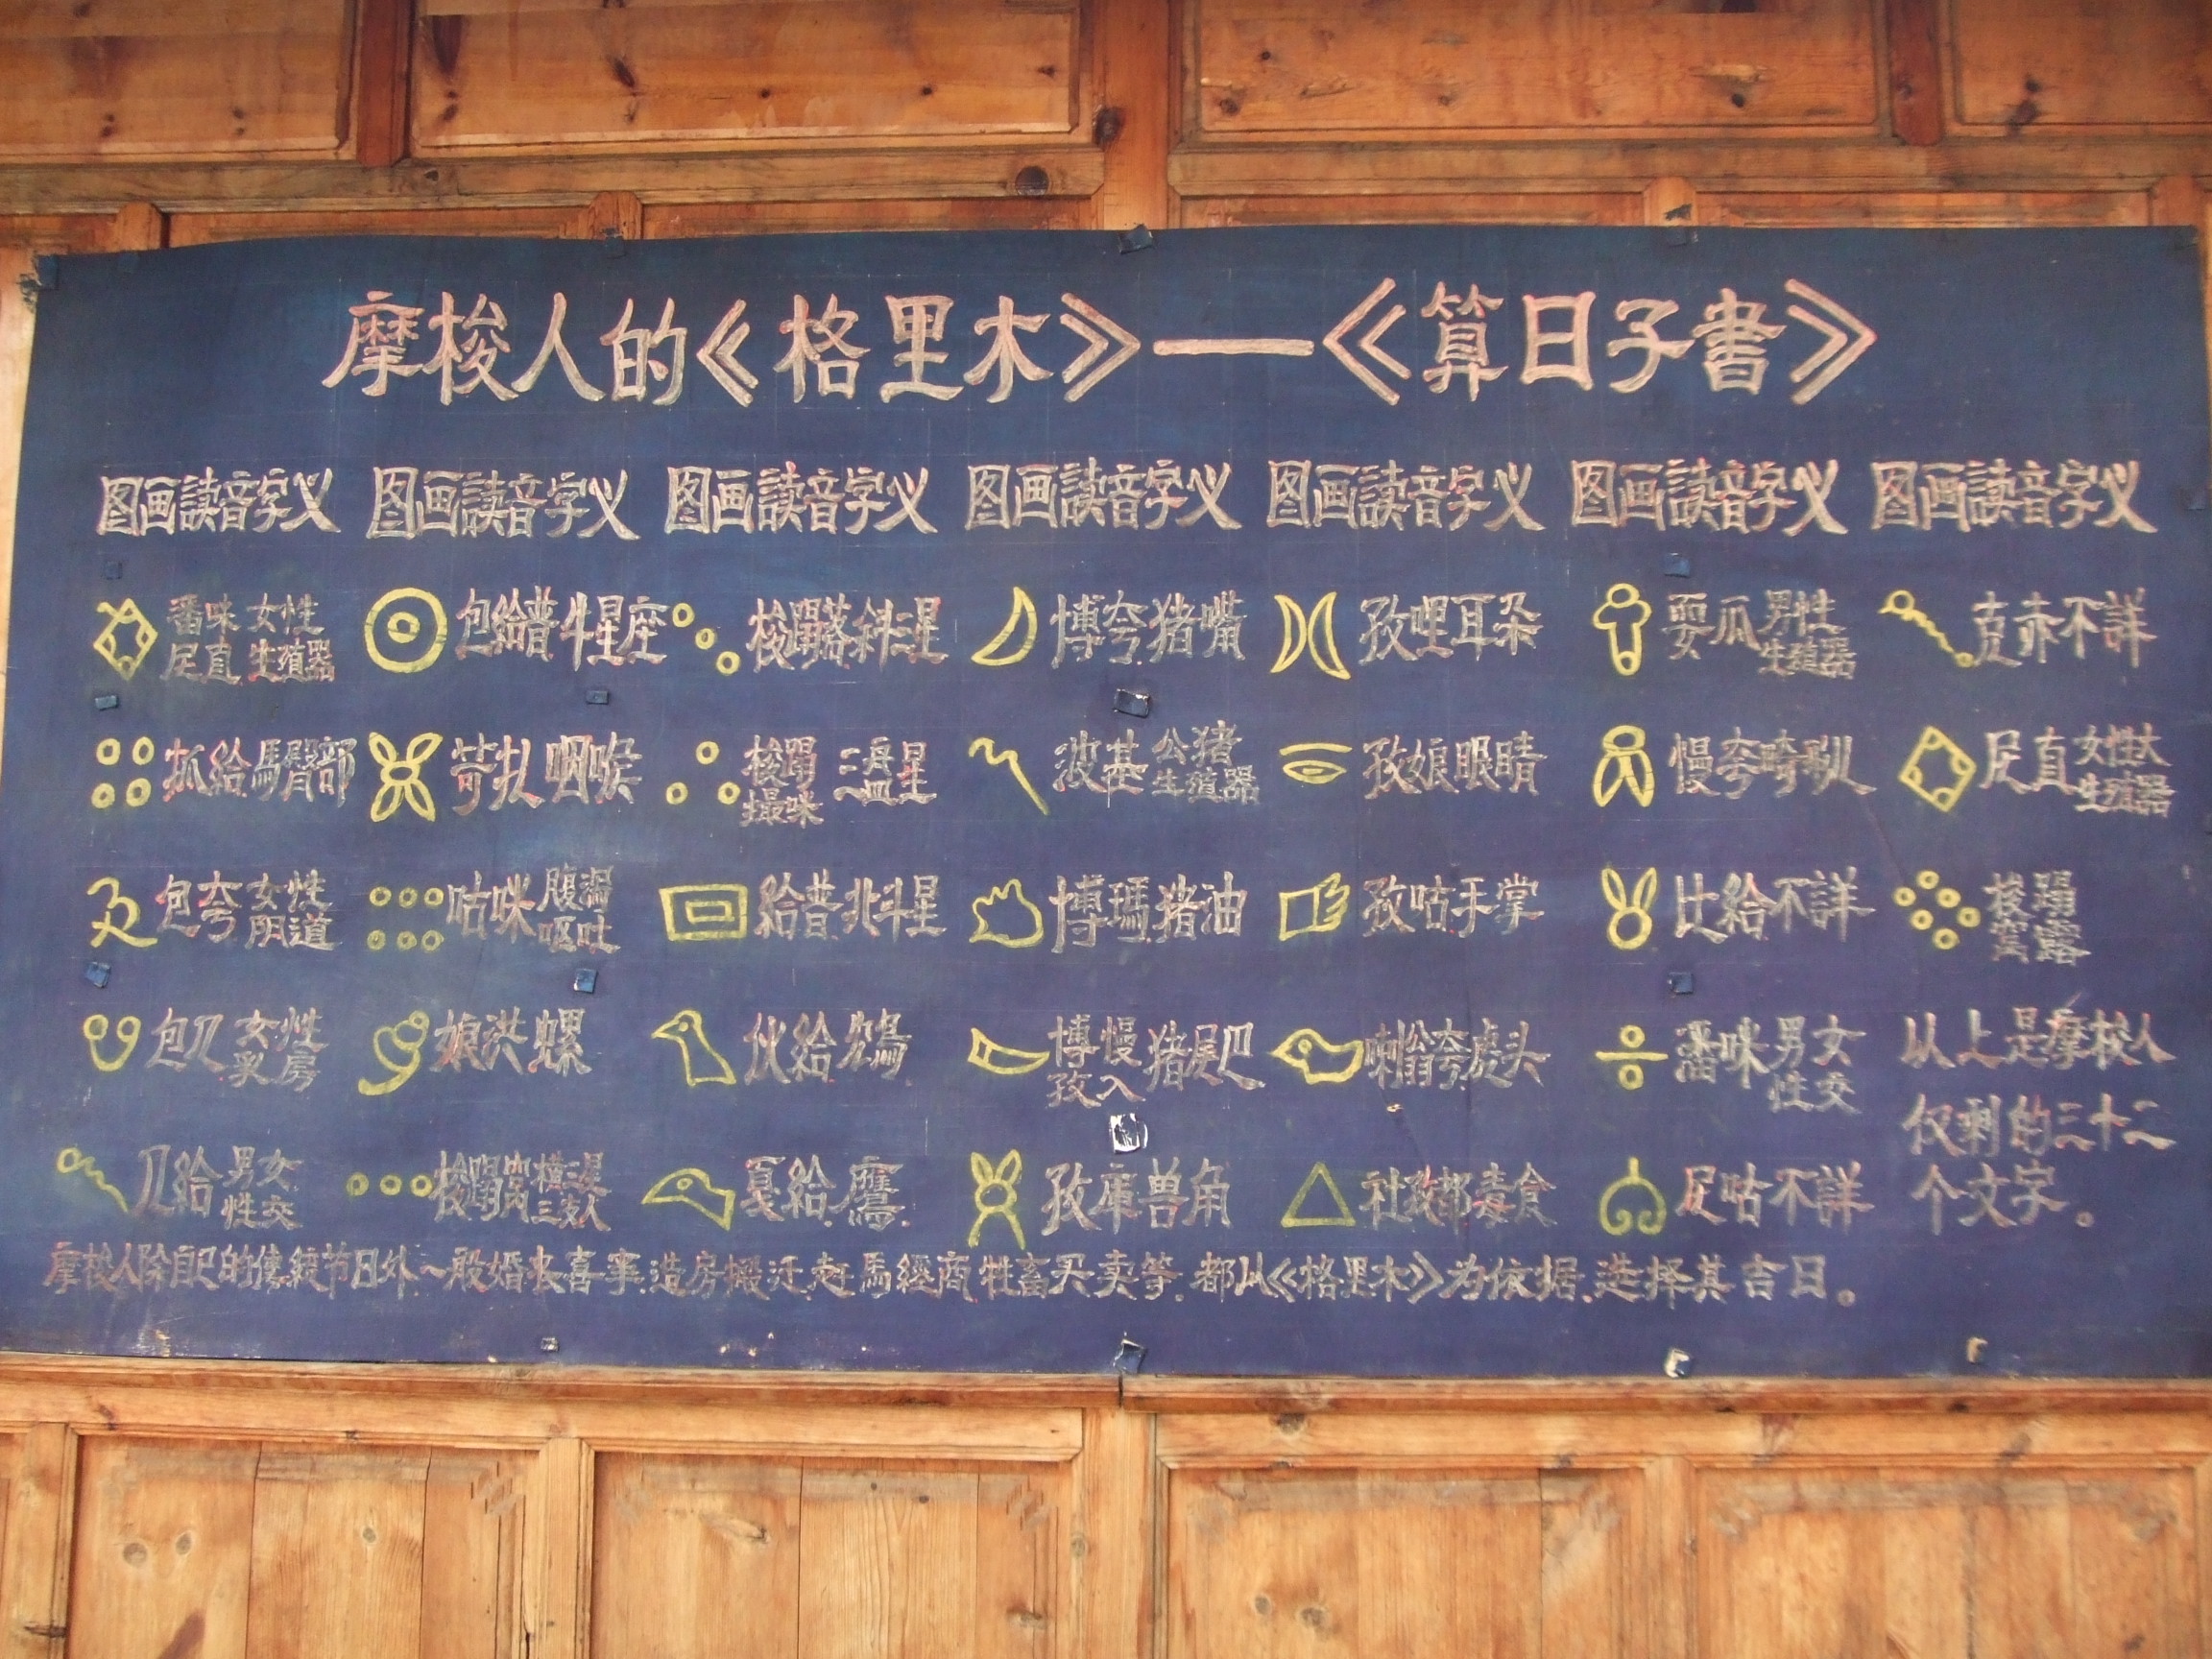 摩梭人的《格里木》—《算日子書》
图画读音字义 图画读音字义 图画读音字义 图画读音字义 图画读音字义 图画读音字义 图画读音字义
番咪 女性 包給普 牛星座 梭踻落 斜三星 博夸 猪嘴 孜哩 耳朵 耍瓜 男性 克赤 不詳
尼直 生殖器 生殖器
抓給 馬臀部 苛扎 咽喉 梭踻 三角星 波基 公猪 孜娘 眼睛 慢夸 尼直 女性大
撮咪 生殖器 生殖器
包夸 女性 咕咪 腹瀉 給昔 北斗星 博瑪 猪油 孜咕 手掌 比給 不詳 梭踻
阴道 呕吐 露
包 女性 娘洪 螺 伙給 鴙 博慢 猪尾巴 喇翁夸 虎头 潘咪 男女 以上是摩梭人
乳房 孜入 性交 仅剩的三十二
給 男女 梭踻 横三星 戛給 鷹 孜庫 兽角 社孜都 毒食 尼咕 不詳 个文字。
性交
摩梭人除自己的傳統节日外一般婚喪喜事.造房搬迁.赶馬經商牲畜买卖等.都以《格里木》为依据.选择其吉日。